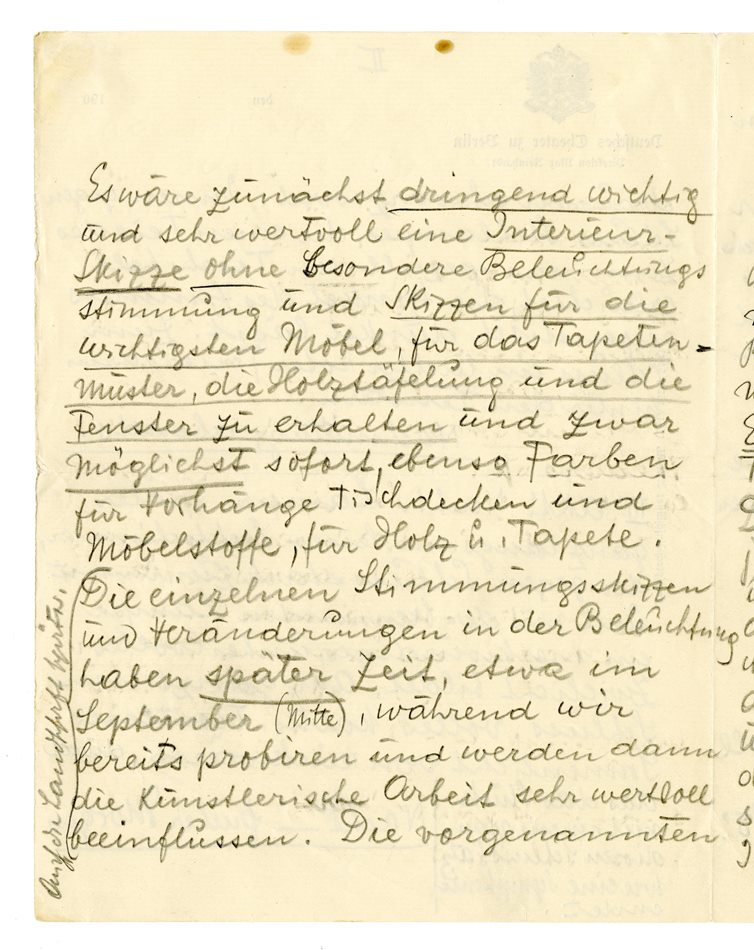 Es wäre zunächst dringend wichtig
und sehr wertvoll eine Interieur-
Skizze ohne besondere Beleuchtungs
stimmung und Skizzen für die
wichtigsten Möbel, für das Tapeten-
muster, die Holztäfelung und die
Fenster zu erhalten und zwar
möglichst sofort, ebenso Farben
für Vorhänge Tischdecken und
Möbelstoffe, für Holz u. Tapete.
Die einzelnen Stimmungsskizzen
und Veränderungen in der Beleuchtung
haben später Zeit, etwa im
September (Mitte), während wir
bereits probiren und werden dann
die künstlerische Arbeit sehr wertvoll
beeinflussen. Die vorgenannten
Auch die Landschaft
II
190
den
Deutsches Theater zu Berlin
Direktion Max Reinhardt